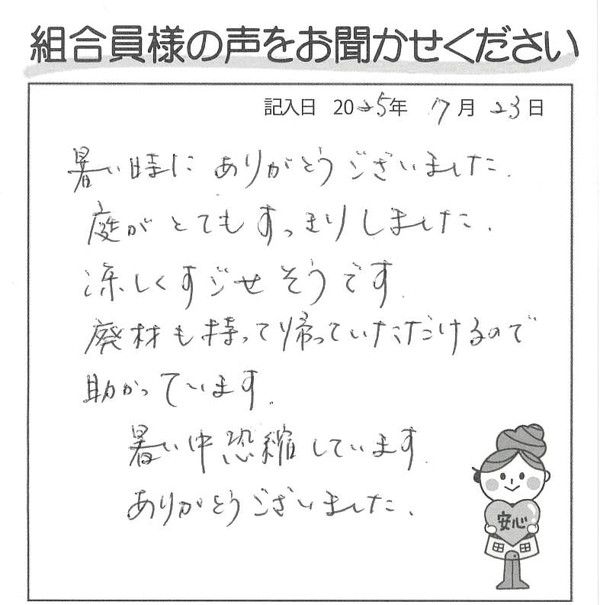 組合員様の声をお聞かせください
記入日 2025年 7月 23日
暑い時に ありがとうございました.
庭が とても すっきり しました.
涼しく すごせ そうです.
廃材も 持って 帰って いただけるので
助かって います.
暑い中 恐縮 しています.
ありがとうございました.
安心